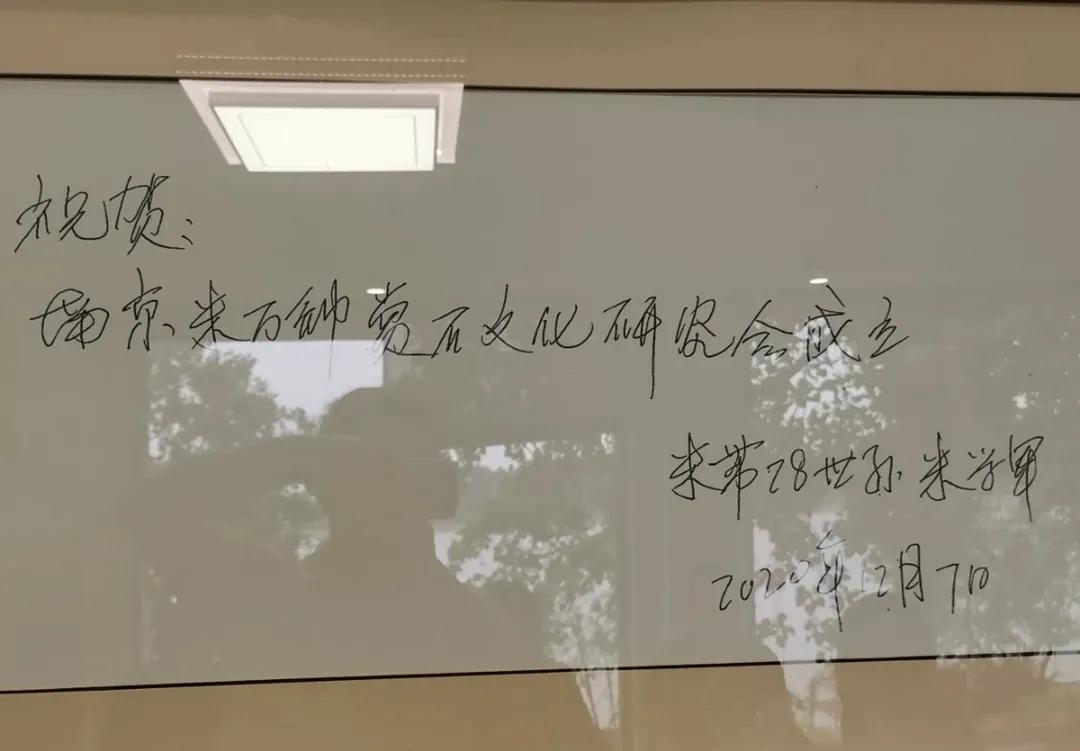 祝贺：
南京米万钟赏石文化研究会成立
米芾28世孙 米学军
2020年12月7日